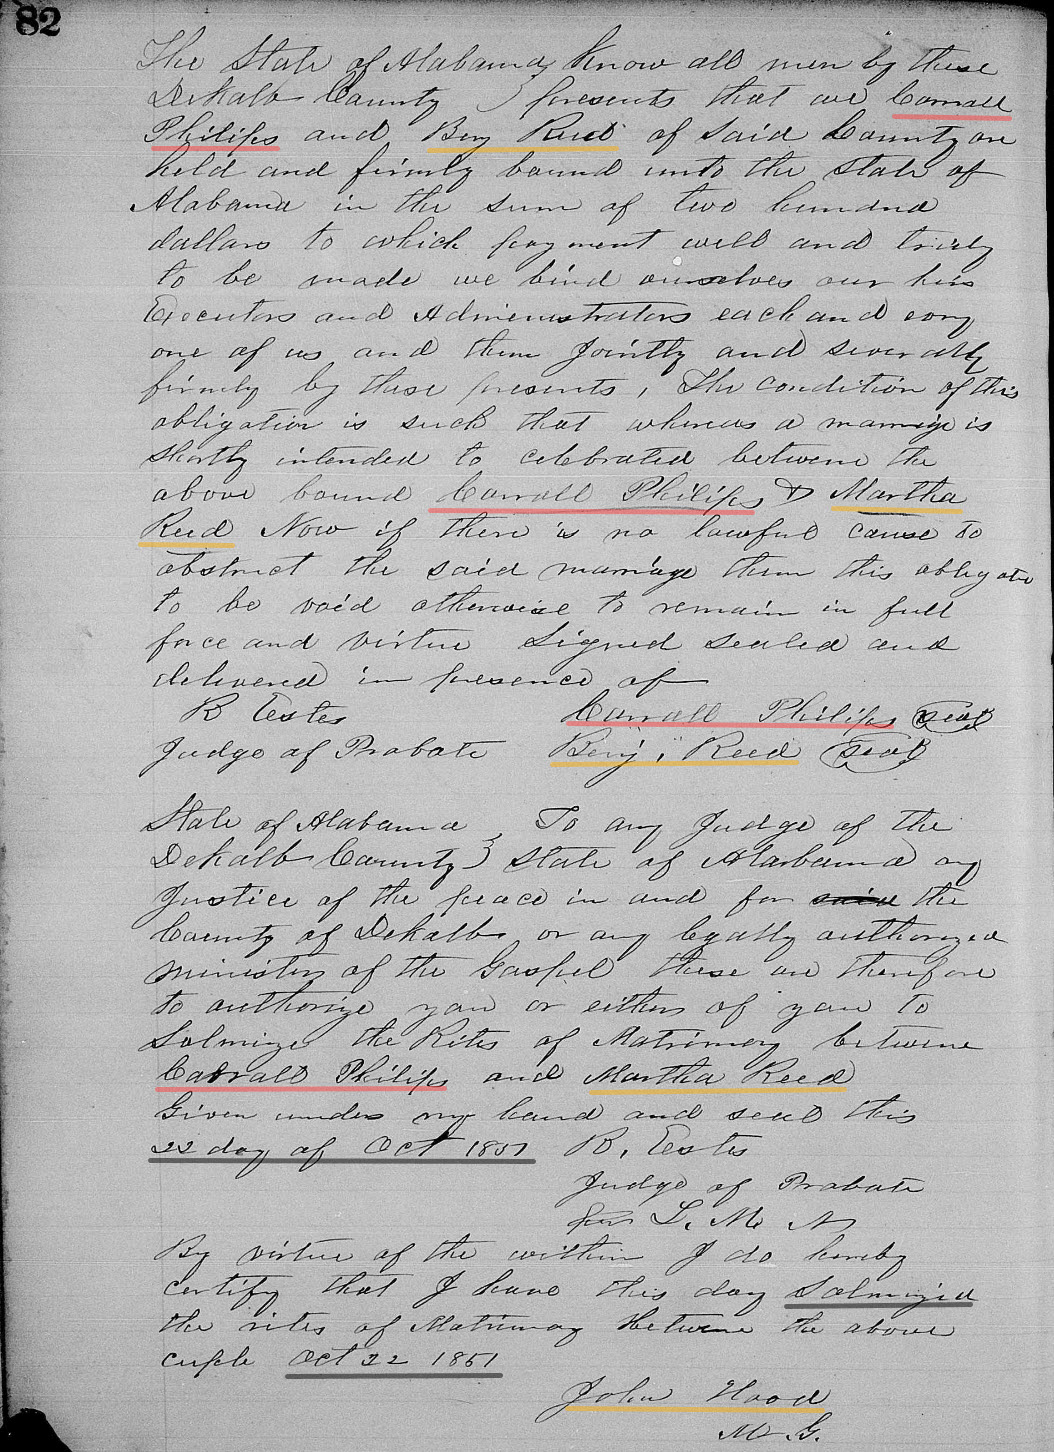 82
The State of Alabama } Know all men by these
DeKalb County } presents that we Carrall
Philips and Benj Reed of said County are
held and firmly bound unto the State of
Alabama in the sum of two hundred
dollars to which payment well and truly
to be made we bind ourselves our heirs
Executors and Administrators each and every
one of us and them Jointly and severally
firmly by these presents, The condition of this
obligation is such that whereas a marriage is
shortly intended to celebrated betwene the
above bound Carrall Philips & Martha
Reed Now if there is no lawful cause to
obstruct the said marriage them this obligatio
to be void otherwise to remain in full
force and virtue Signed sealed and
delivered in presence of
R Estes Carrall Philips (Seal)
Judge of Probate Benj, Reed (Seal)
State of Alabama } To any Judge of the
DeKalb County } State of Alarbama any
Justice of the peace in and for the
County of DeKalb or any legally authorized
minister of the Gospel these are therefore
to authorize you or either of you to
Solmnize the Rites of Matrimony betwene
Carrall Philips and Martha Reed
Given under my hand and seal this
22 day of Oct 1851 R, Estes
Judge of Probate
per L. M. N
By virtue of the within I do hereby
certify that I have this day Solmnized
the rites of Matrimony Betwene the above
cuple Oct 22 1851
John Hood
M G.